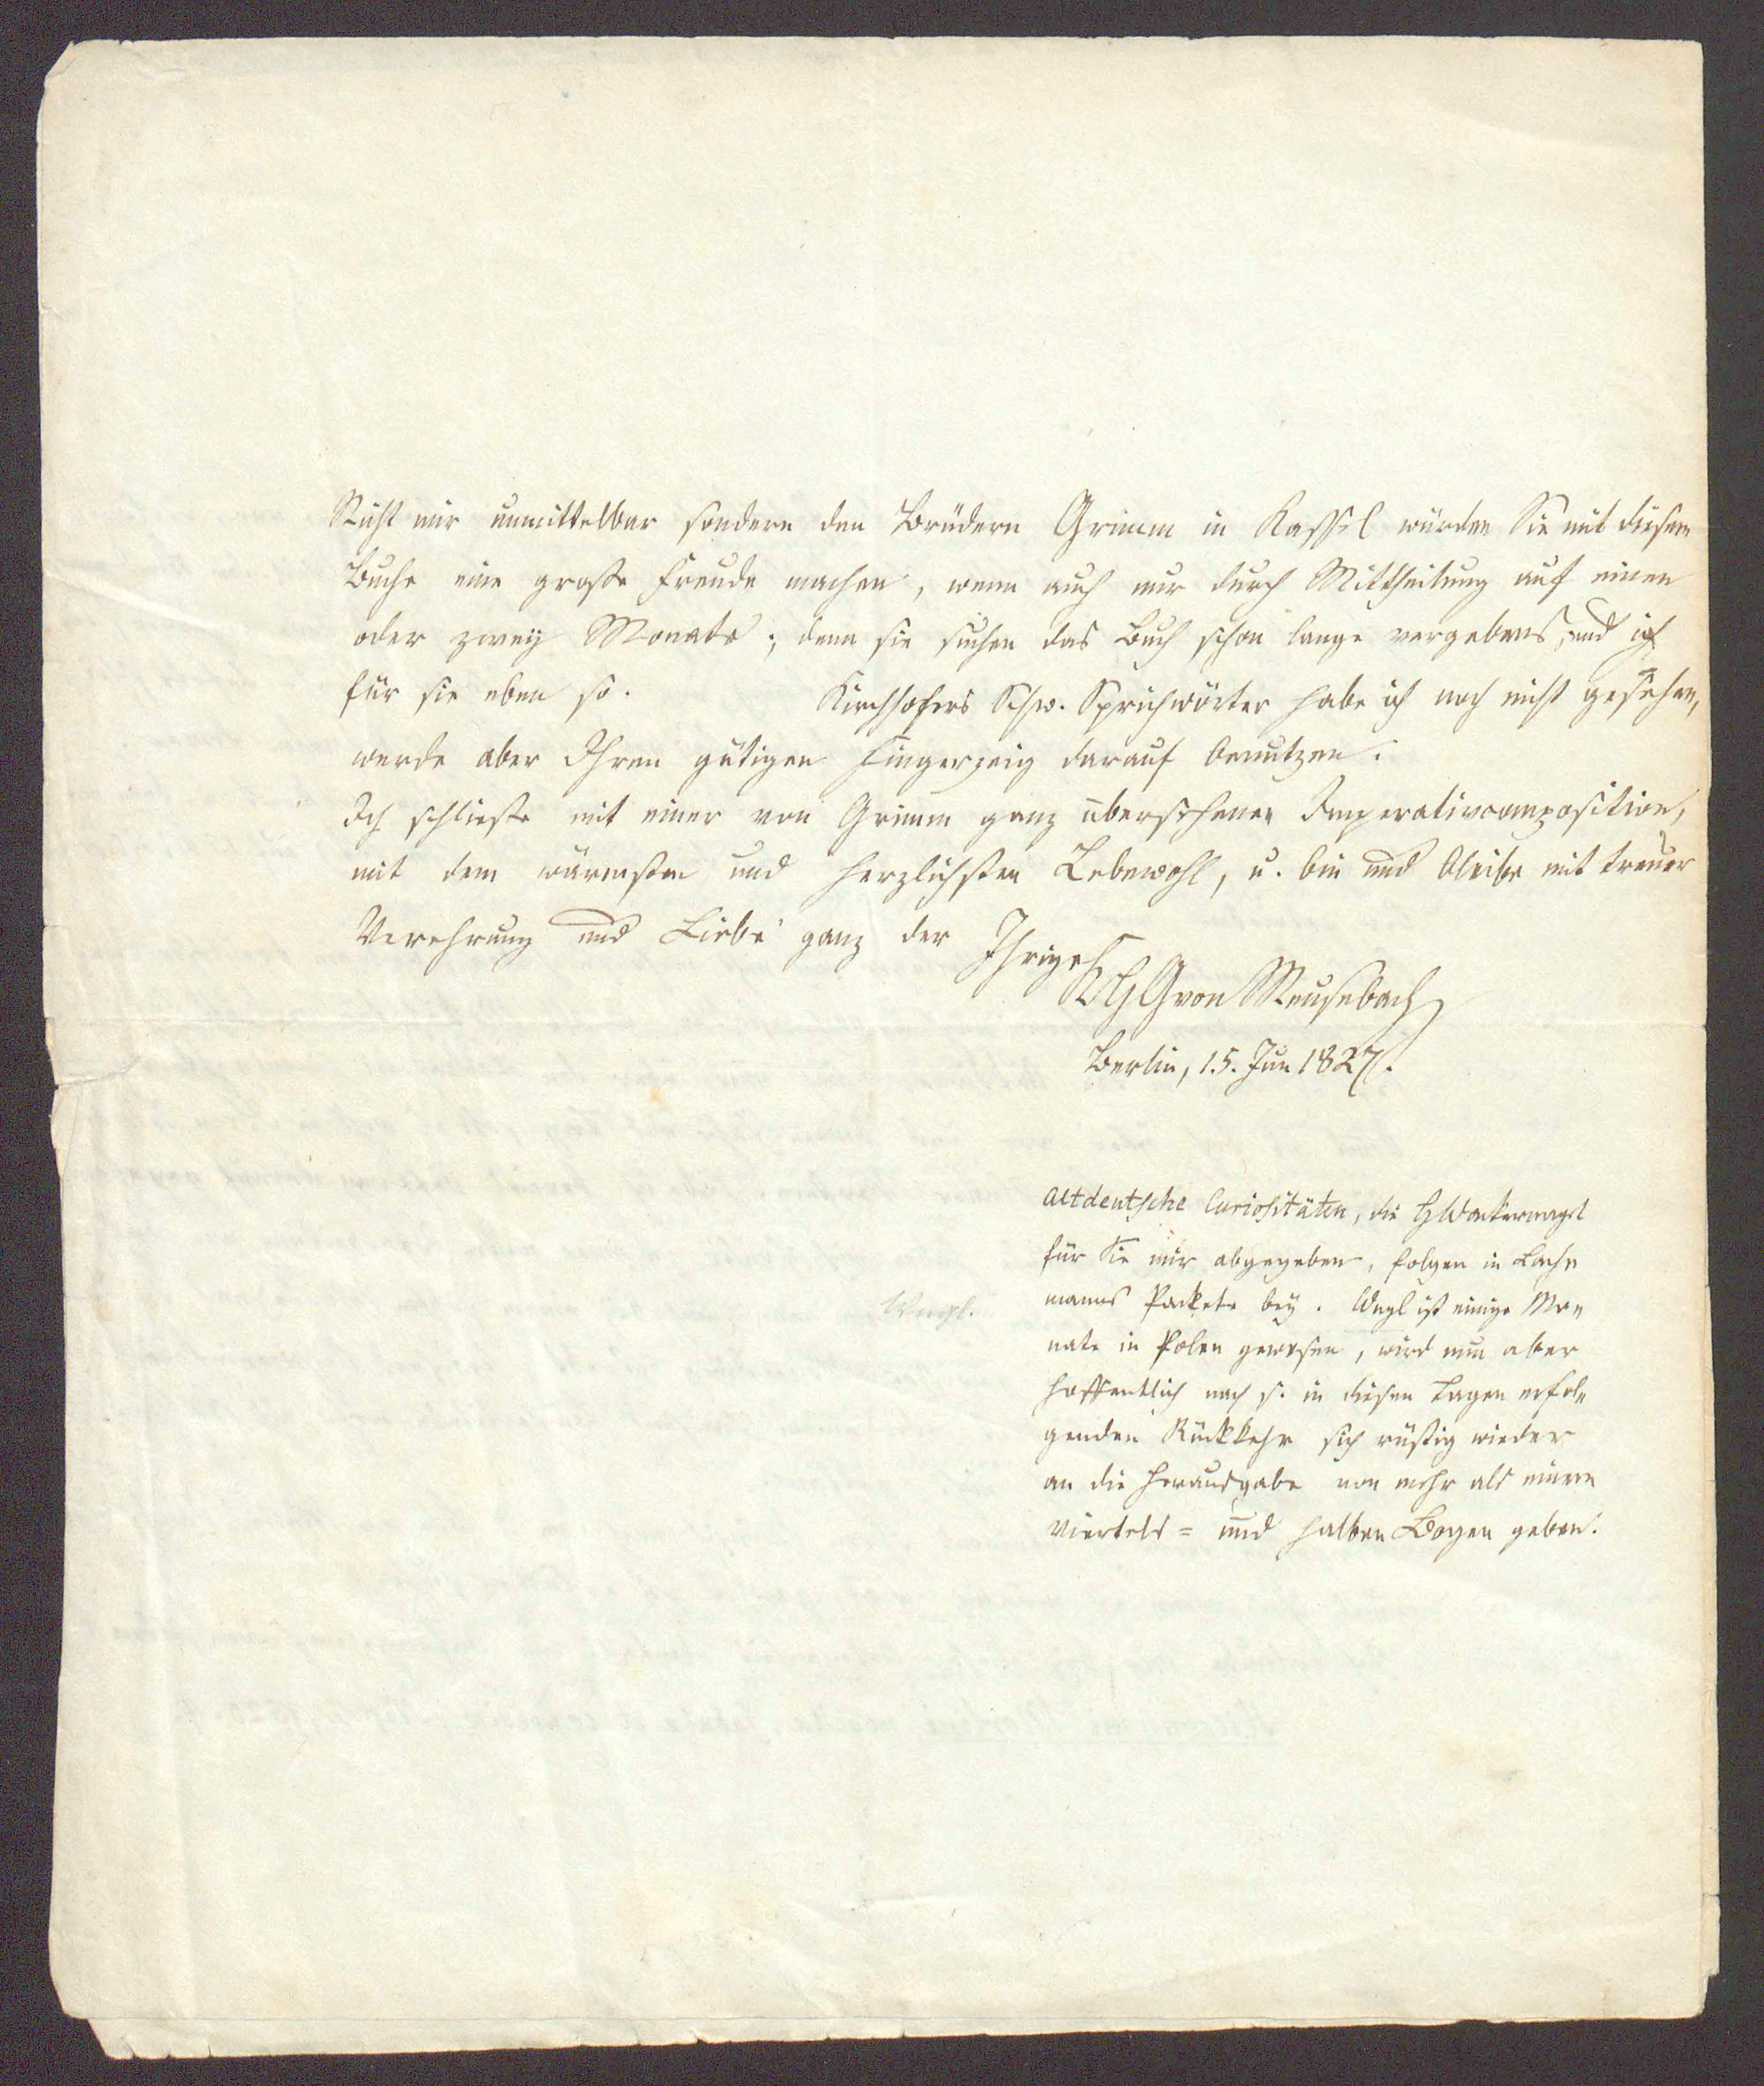 Nicht mir unmittelbar sondern den Brüdern Grimm in Kassel würden Sie mit diesem
Buche eine große Freude machen, wenn auch nur durch Mittheilung auf einen
oder zwey Monate; denn sie suchen das Buch schon lange vergebens, und ich
für sie eben so. Kirchhofers Schw. Sprichwörter habe ich noch nicht gesehen,
werde aber Ihren gütigen Fingerzeig darauf benutzen.
Ich schließe mit einer von Grimm ganz übersehenen Imperativcomposition,
mit dem wärmsten und herzlichsten Lebewohl, u. bin und bleibe mit treuer
Verehrung und Liebe ganz der Ihrige
KHGvon Meusebach
Berlin, 15. Jun 1827.
altdeutsche Curiositäten, die H Wackernagel
für Sie mir abgegeben, folgen in Lach
manns Packete bey. Wngl ist einige Mo
nate in Polen gewesen, wird nun aber
hoffentlich nach s. in diesen Tagen erfol
genden Rückkehr sich rüstig wieder
an die Herausgabe von mehr als einem
Viertels= und halben Bogen geben.
Wngl.